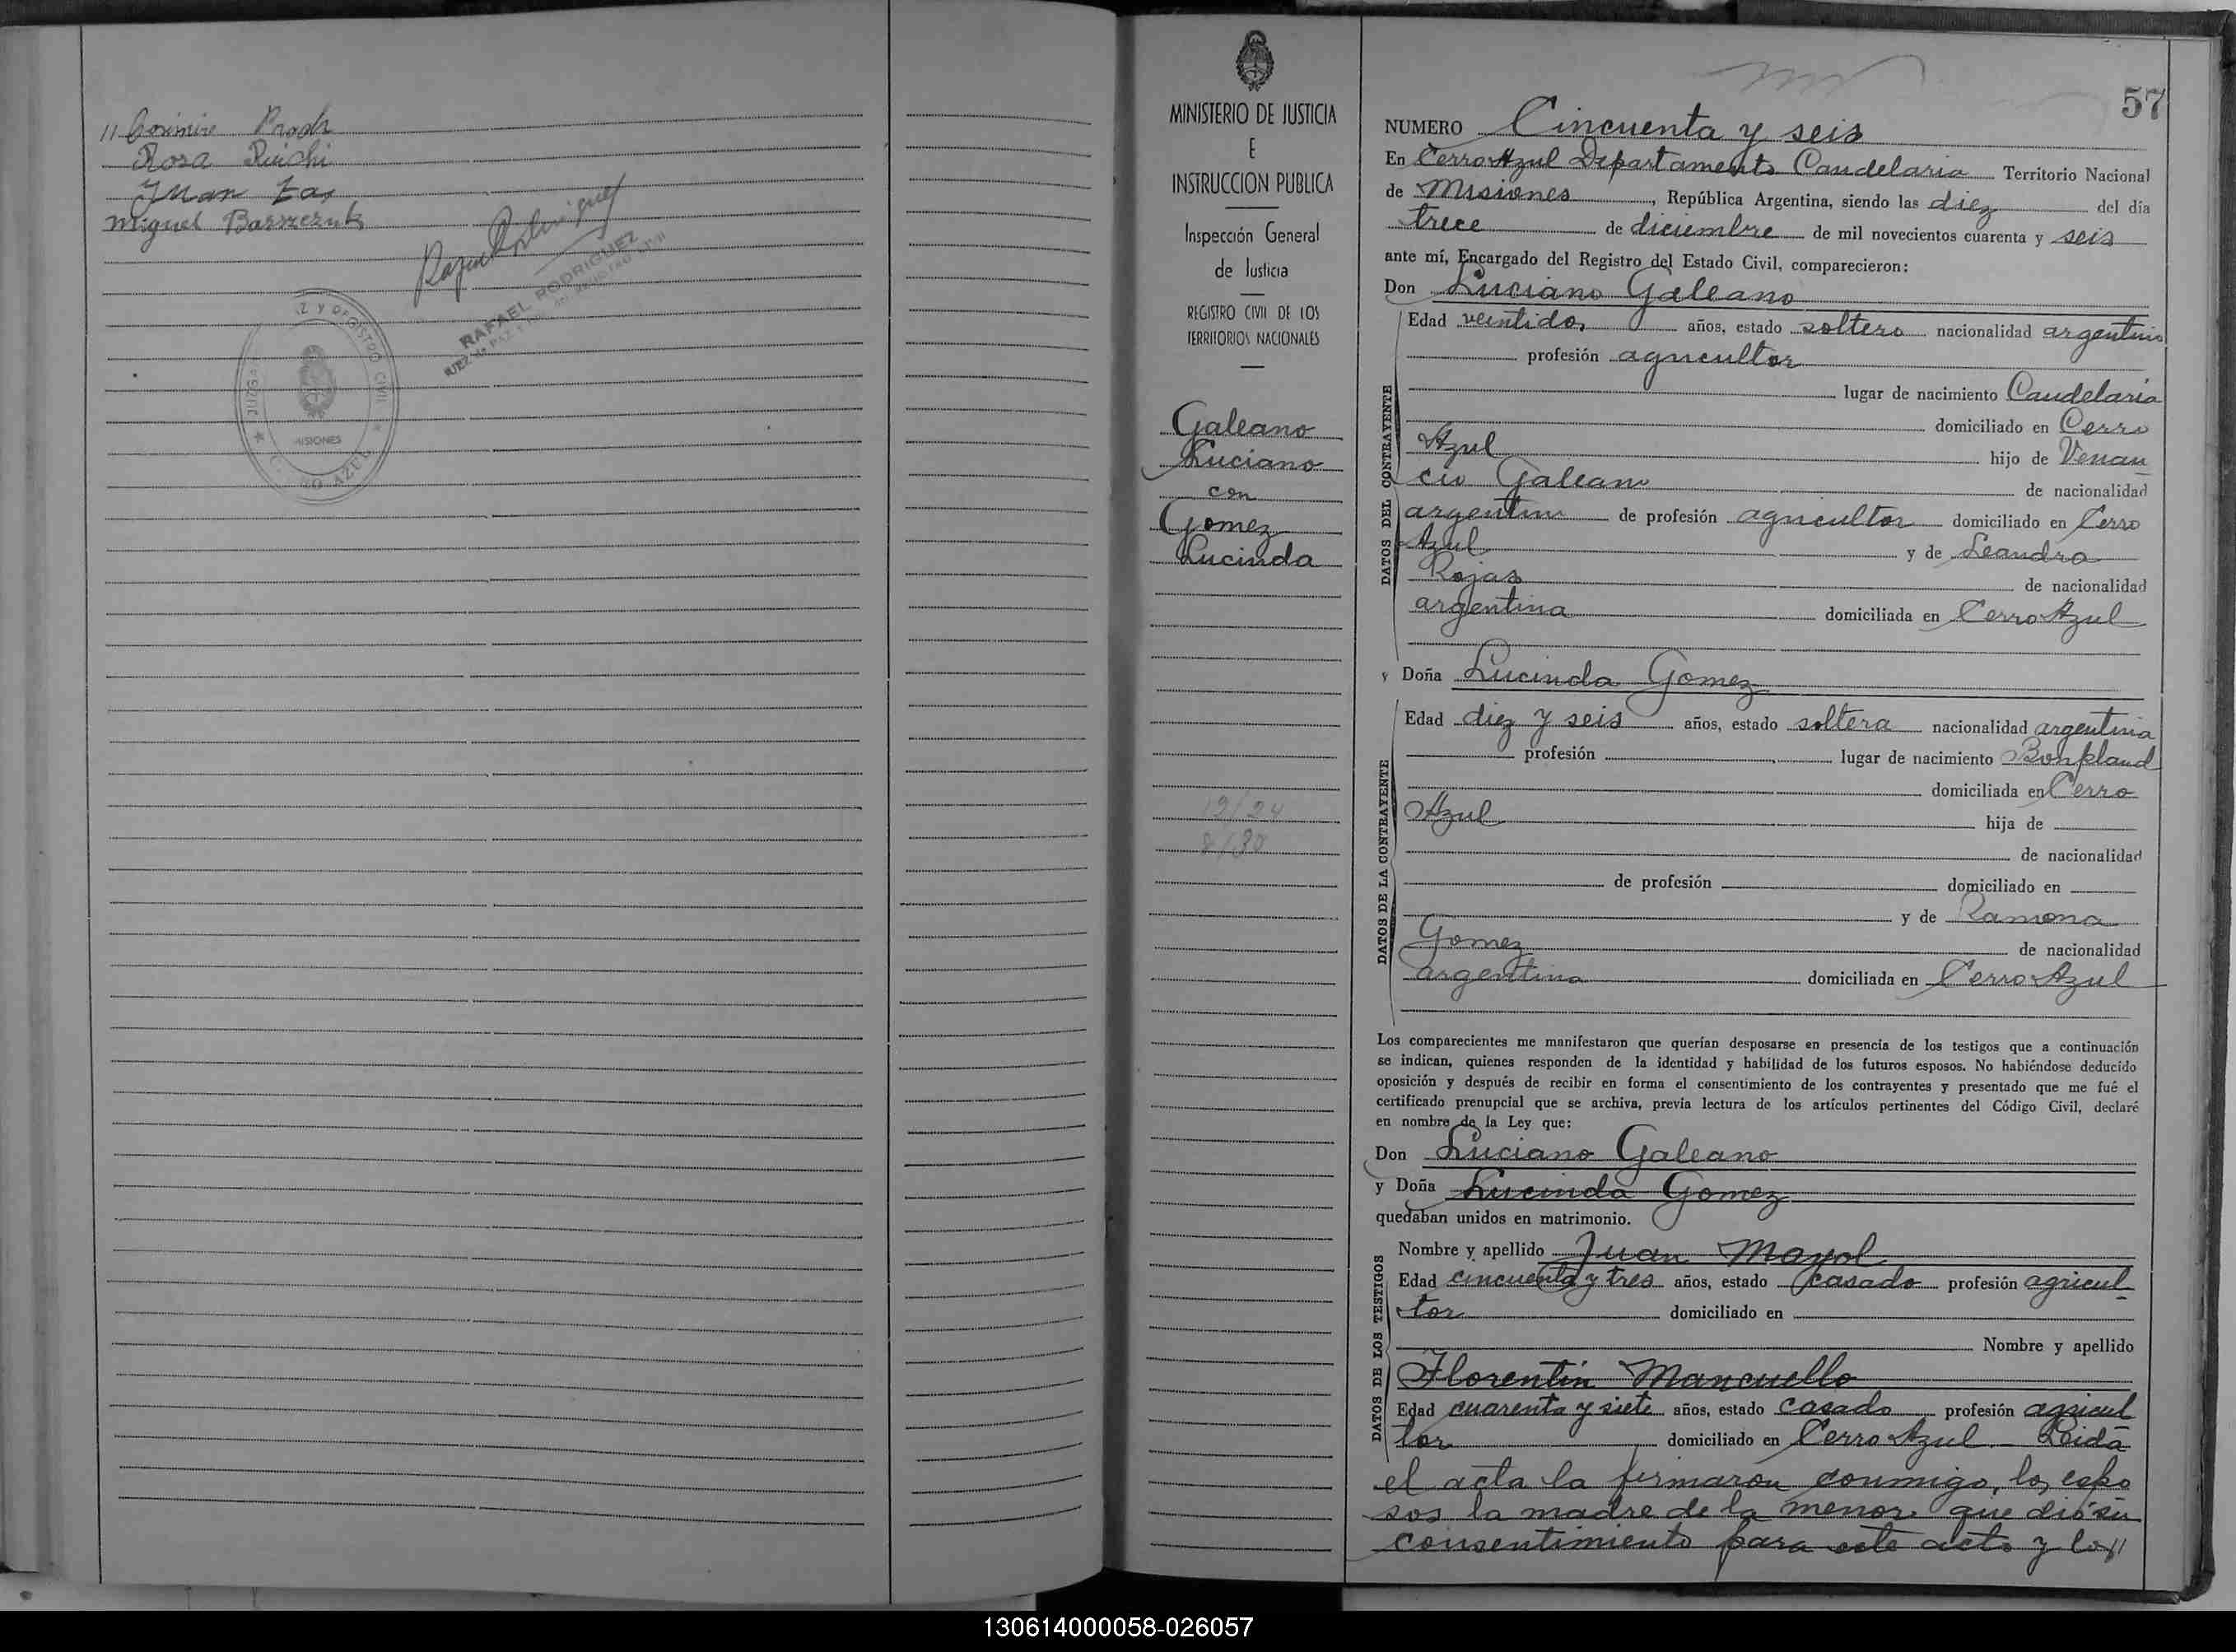 Rosa
Juan
Miguel
RAFAEL RODRIGUEZ
REGISTRO CIVIL
MISIONES
57
MINISTERIO DE JUSTICIA
E
INSTRUCCION PUBLICA
Inspección General
de Justicia
REGISTRO CIVIL DE LOS
TERRITORIOS NACIONALES
Galeano
Luciano
con
Gomez
Lucinda
12/24
8/30
NUMERO Cincuenta y seis
En Cerro Azul Departamento Candelaria Territorio Nacional
de Misiones, República Argentina, siendo las diez del día
trece de diciembre de mil novecientos cuarenta y seis
ante mí, Encargado del Registro del Estado Civil, comparecieron:
Don Luciano Galeano
DATOS DEL CONTRAYENTE
Edad veintidos años, estado soltero nacionalidad argentino
profesión agricultor
lugar de nacimiento Candelaria
domiciliado en Cerro
Azul hijo de Venan
cio Galeano de nacionalidad
argentino de profesión agricultor domiciliado en Cerro
Azul y de Leandra
Rojas de nacionalidad
argentina domiciliada en Cerro Azul
y Doña Lucinda Gomez
DATOS DE LA CONTRAYENTE
Edad diez y seis años, estado soltera nacionalidad argentina
profesión lugar de nacimiento Bonpland
domiciliada en Cerro
Azul hija de
de nacionalidad
de profesión domiciliado en
y de Ramona
Gomez de nacionalidad
argentina domiciliada en Cerro Azul
Los comparecientes me manifestaron que querían desposarse en presencia de los testigos que a continuación
se indican, quienes responden de la identidad y habilidad de los futuros esposos. No habiéndose deducido
oposición y después de recibir en forma el consentimiento de los contrayentes y presentado que me fué el
certificado prenupcial que se archiva, previa lectura de los artículos pertinentes del Código Civil, declaré
en nombre de la Ley que:
Don Luciano Galeano
y Doña Lucinda Gomez
quedaban unidos en matrimonio.
DATOS DE LOS TESTIGOS
Nombre y apellido Juan Mayol
Edad cincuenta y tres años, estado casado profesión agricul
tor domiciliado en
Nombre y apellido
Florentin Mancuello
Edad cuarenta y siete años, estado casado profesión agricul
tor domiciliado en Cerro Azul.- Leida
el acta la firmaron conmigo, los espo
sos la madre de la menor que dió su
consentimiento para este acto y los//
130614000058-026057